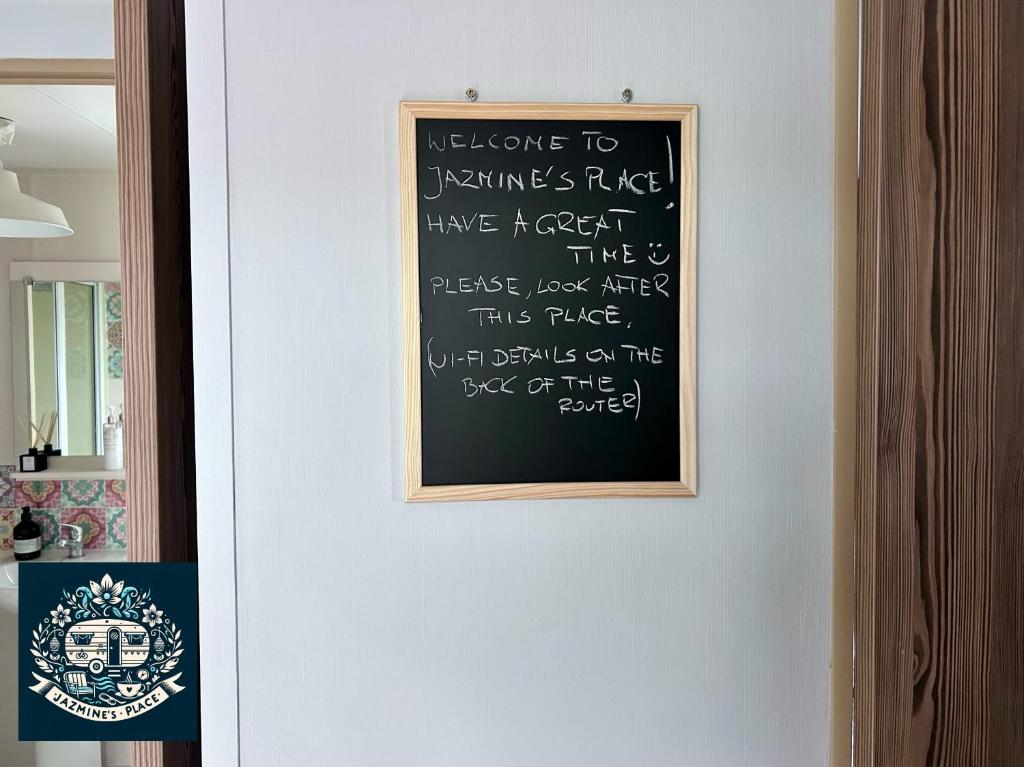 WELCOME TO
JAZMINE'S PLACE!
HAVE A GREAT
TIME
PLEASE, LOOK AFTER
THIS PLACE.
(WI-FI DETAILS ON THE
BACK OF THE
ROUTER)
JAZMINE'S · PLACE